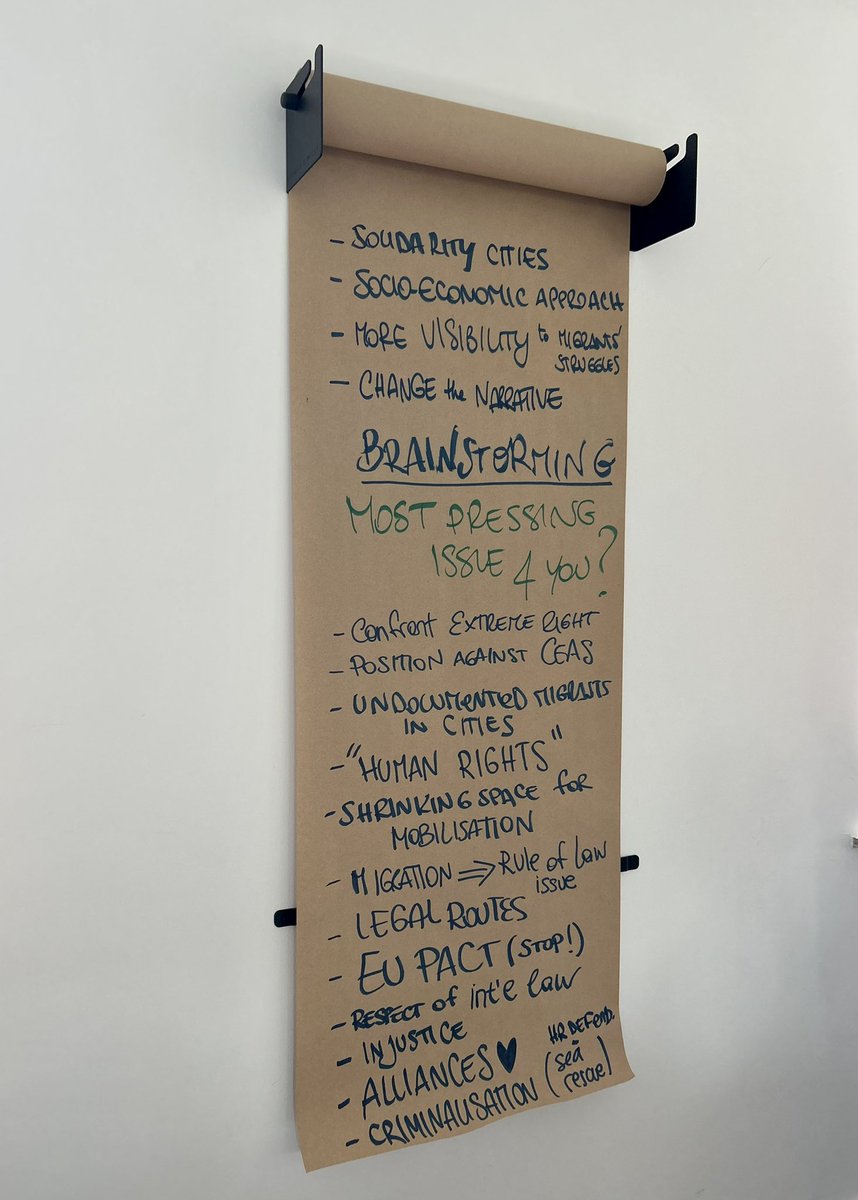 - SOLIDARITY CITIES
- SOCIO-ECONOMIC APPROACH
- MORE VISIBILITY to MIGRANTS'
STRUGGLES
- CHANGE the NARRATIVE
BRAINSTORMING
MOST PRESSING
ISSUE 4 YOU?
- Confront EXTREME RIGHT
- POSITION AGAINST CEAS
- UNDOCUMENTED MIGRANTS
IN CITIES
- "HUMAN RIGHTS"
- SHRINKING SPACE for
MOBILISATION
- MIGRATION ⇒ Rule of law
issue
- LEGAL ROUTES
- EU PACT (STOP!)
- RESPECT of int'l law
- INJUSTICE
- ALLIANCES ♥
- CRIMINALISATION (sea rescue)
HR DEFEND.